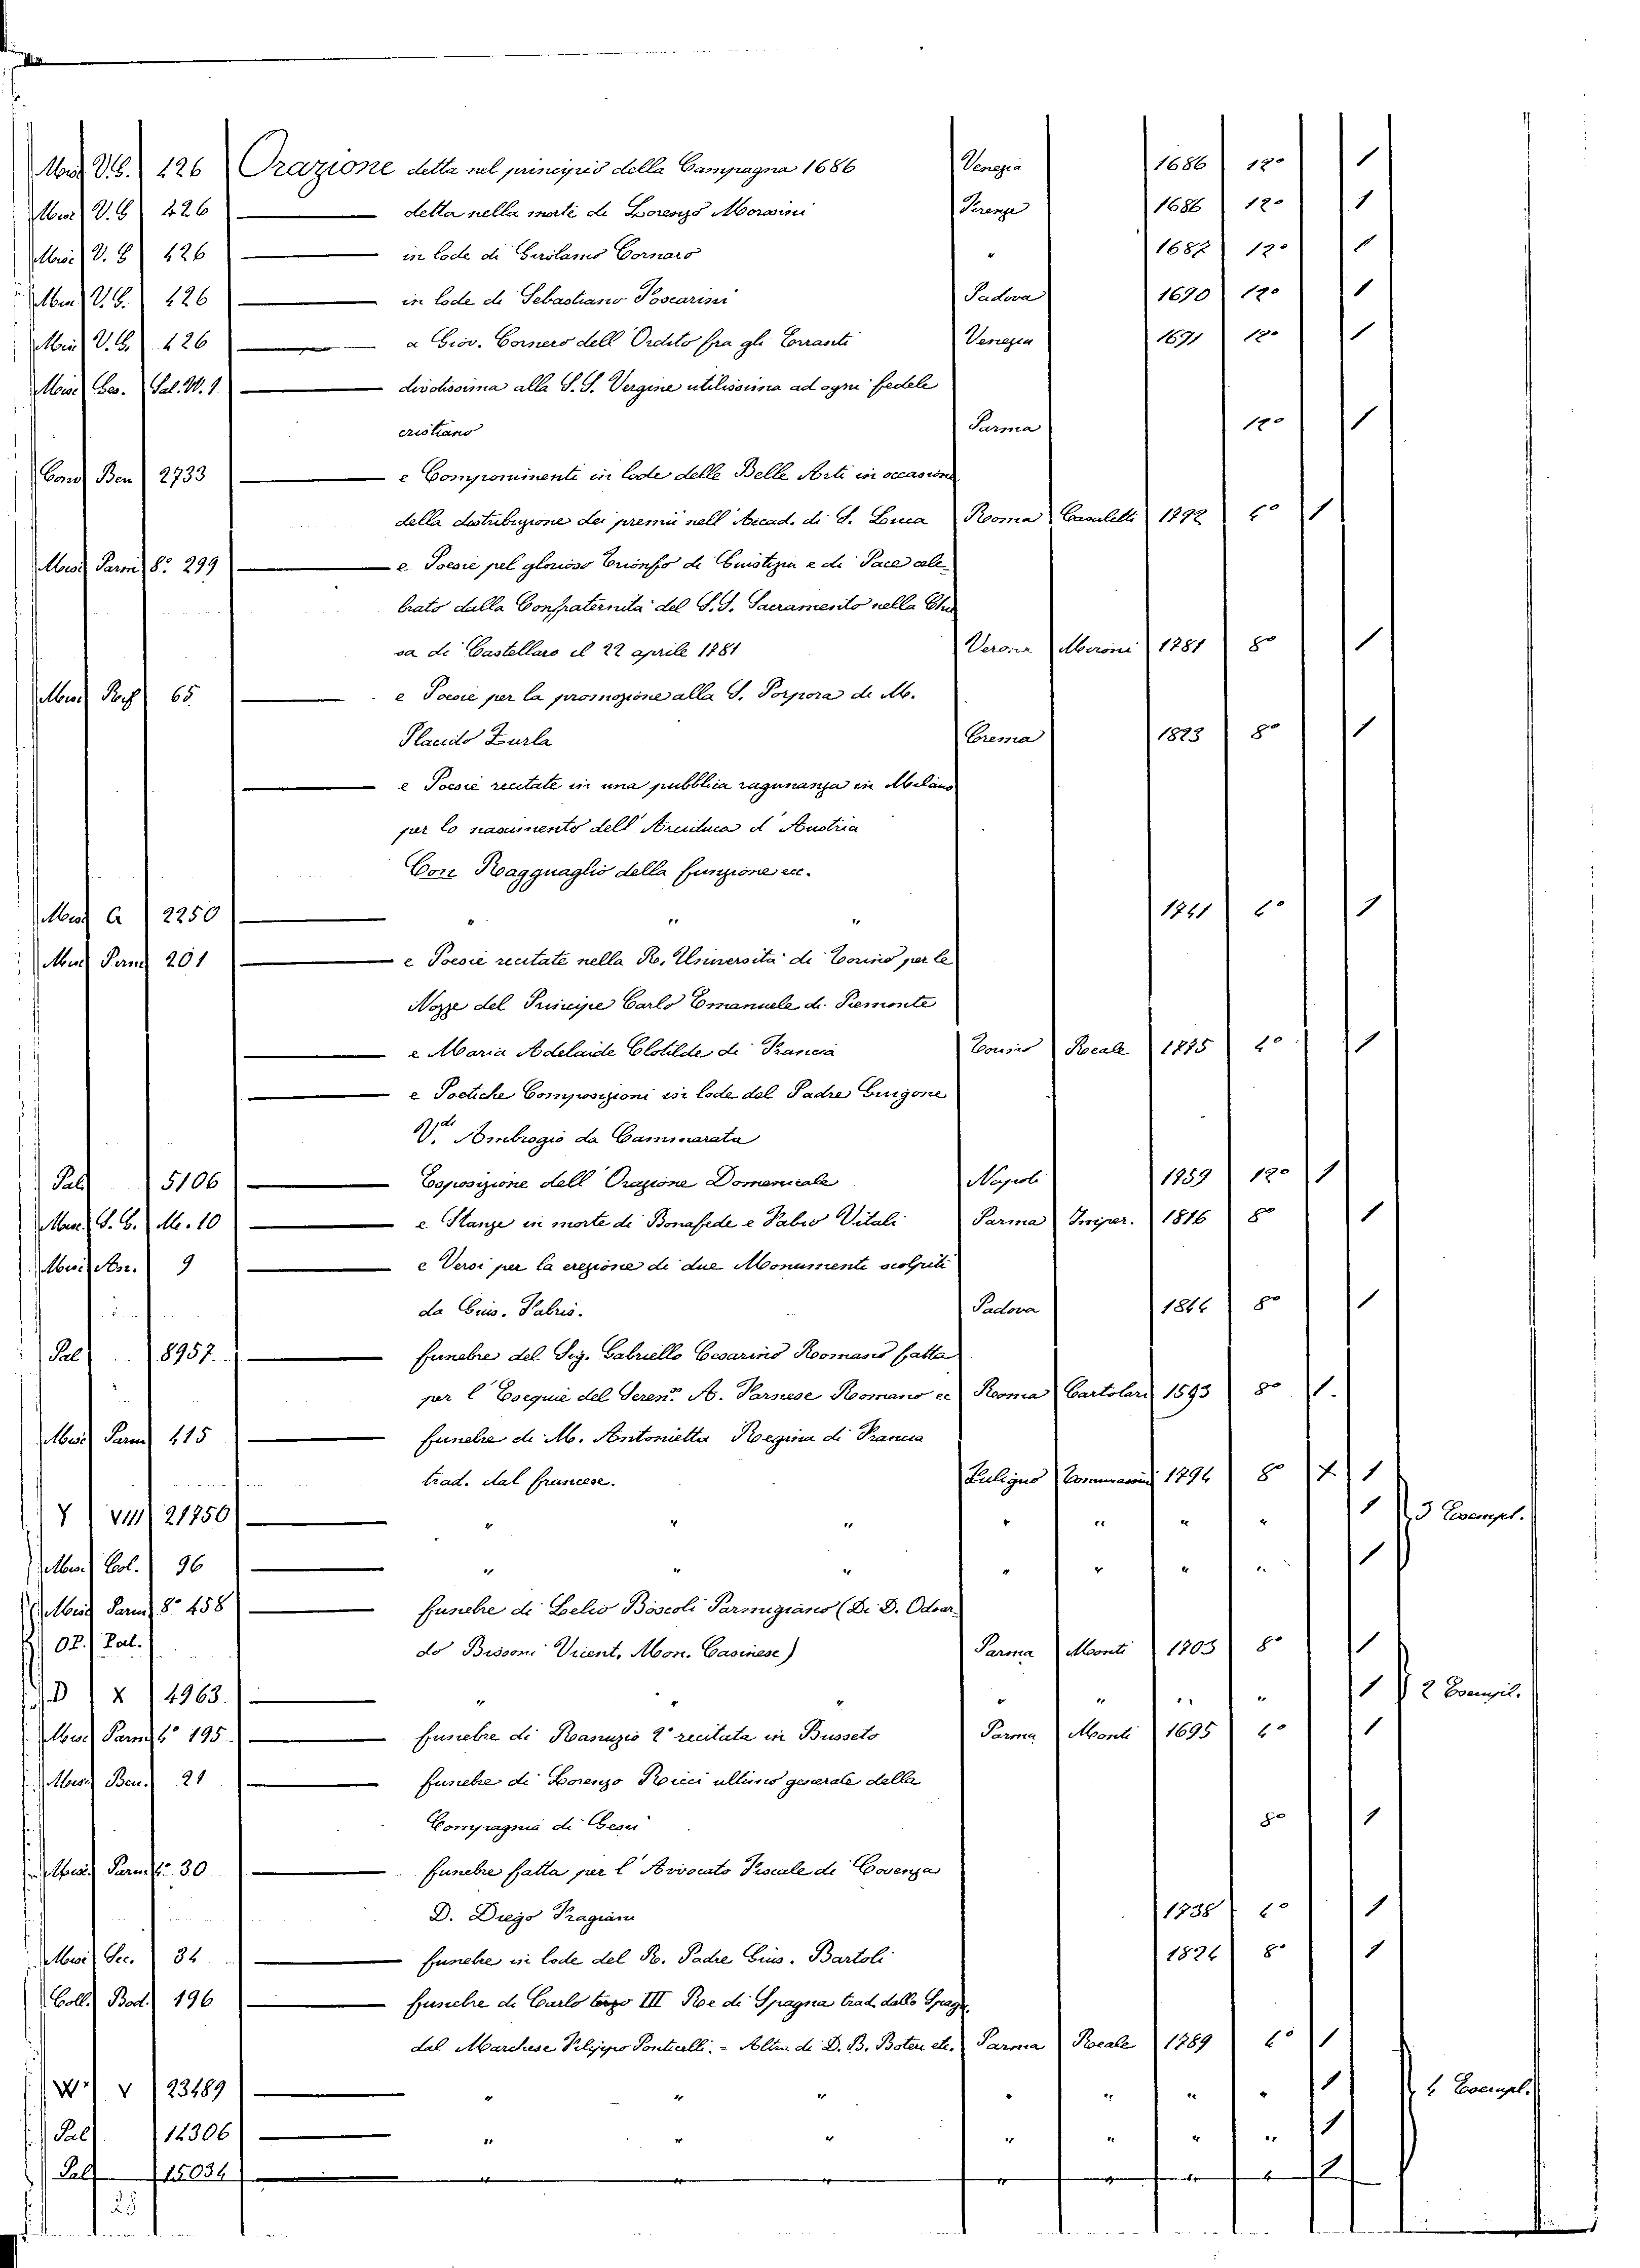 Misc V.E. 426 Orazione detta nel principio della Campagna 1686 Venezia 1686 12° 1
Misc V.E. 426 — detta nella morte di Lorenzo Morosini Firenze 1686 12° 1
Misc V.E. 426 — in lode di Girolamo Cornaro " 1687 12° 1
Misc V.E. 426 — in lode di Sebastiano Foscarini Padova 1690 12° 1
Misc V.E. 426 — a Giov. Cornero dell'Ordito fra gli Erranti Venezia 1691 12° 1
Misc Ges. Sal. W. 1 — divotissima alla S. S. Vergine utilissima ad ogni fedele
cristiano Parma 12° 1
Conv Ben 2733 — e Componimenti in lode delle Belle Arti in occasione
della distribuzione dei premii nell'Accad. di S. Luca Roma Casaletti 1792 4° 1
Misc Parm 8° 299 — e Poesie pel glorioso Trionfo di Giustizia e di Pace cele-
brato dalla Confraternita del S. S. Sacramento nella Chie
sa di Castellaro il 22 aprile 1781 Verona Moroni 1781 8° 1
Misc 65 — e Poesie per la promozione alla S. Porpora di M.
Placido Zurla Crema 1823 8° 1
— e Poesie recitate in una pubblica ragunanza in Milano
per lo nascimento dell'Arciduca d'Austria
Con Ragguaglio della funzione ecc.
Misc G 2250 — " " " 1741 4° 1
Misc Parm 201 — e Poesie recitate nella R. Università di Torino per le
Nozze del Principe Carlo Emanuele di Piemonte
— e Maria Adelaide Clotilde di Francia Torino Reale 1775 4° 1
— e Poetiche Composizioni in lode del Padre Grigone
V. Ambrogio da Cammarata
Pal 5106 — Esposizione dell'Orazione Domenicale Napoli 1859 12° 1
Misc. S. C. M. 10 — e Stanze in morte di Bonafede e Fabio Vitali Parma Imper. 1816 8° 1
Misc Am. 9 — e Versi per la erezione di due Monumenti scolpiti
da Gius. Fabris. Padova 1846 8° 1
Pal 8957 — funebre del Sig. Gabriello Cesarino Romano fatta
per l'Esequie del Seren.mo A. Farnese Romano ec Roma Cartolari 1593 8° 1.
Misc Parm 415 — funebre di M. Antonietta Regina di Francia
trad. dal francese. Fuligno Tommassini 1794 8° 1
Y VIII 21750 — " " " " " " " 1 3 Esempl.
Misc. Col. 96 — " " " " " " " 1
Misc Parm 8° 458 — funebre di Lelio Boscoli Parmigiano (Di D. Odoar-
OP. Pal. do Bissoni Vicent. Mon. Casinese) Parma Monti 1703 8° 1
D X 4963. — " " " " " " " 1 2 Esempl.
Misc Parm 4° 195 — funebre di Ranuzio 2° recitata in Busseto Parma Monti 1695 4° 1
Misc Ben. 21 — funebre di Lorenzo Ricci ultimo generale della
Compagnia di Gesù 8° 1
Misc. Parm f° 30 — funebre fatta per l'Avvocato Fiscale di Cosenza
D. Diego Fragiani 1738 4° 1
Misc Sec. 34 — funebre in lode del R. Padre Gius. Bartoli 1824 8° 1
Coll. Bod. 196 — funebre di Carlo terzo III Re di Spagna trad. dallo Spagn.
dal Marchese Filippo Ponticelli. - Altra di D. B. Boteri etc. Parma Reale 1789 4° 1
W V 23489 — " " " " " " " 1 4 Esempl.
Pal 12306 — " " " " " " " 1
Pal 15034 — " " " " " " " 1
28